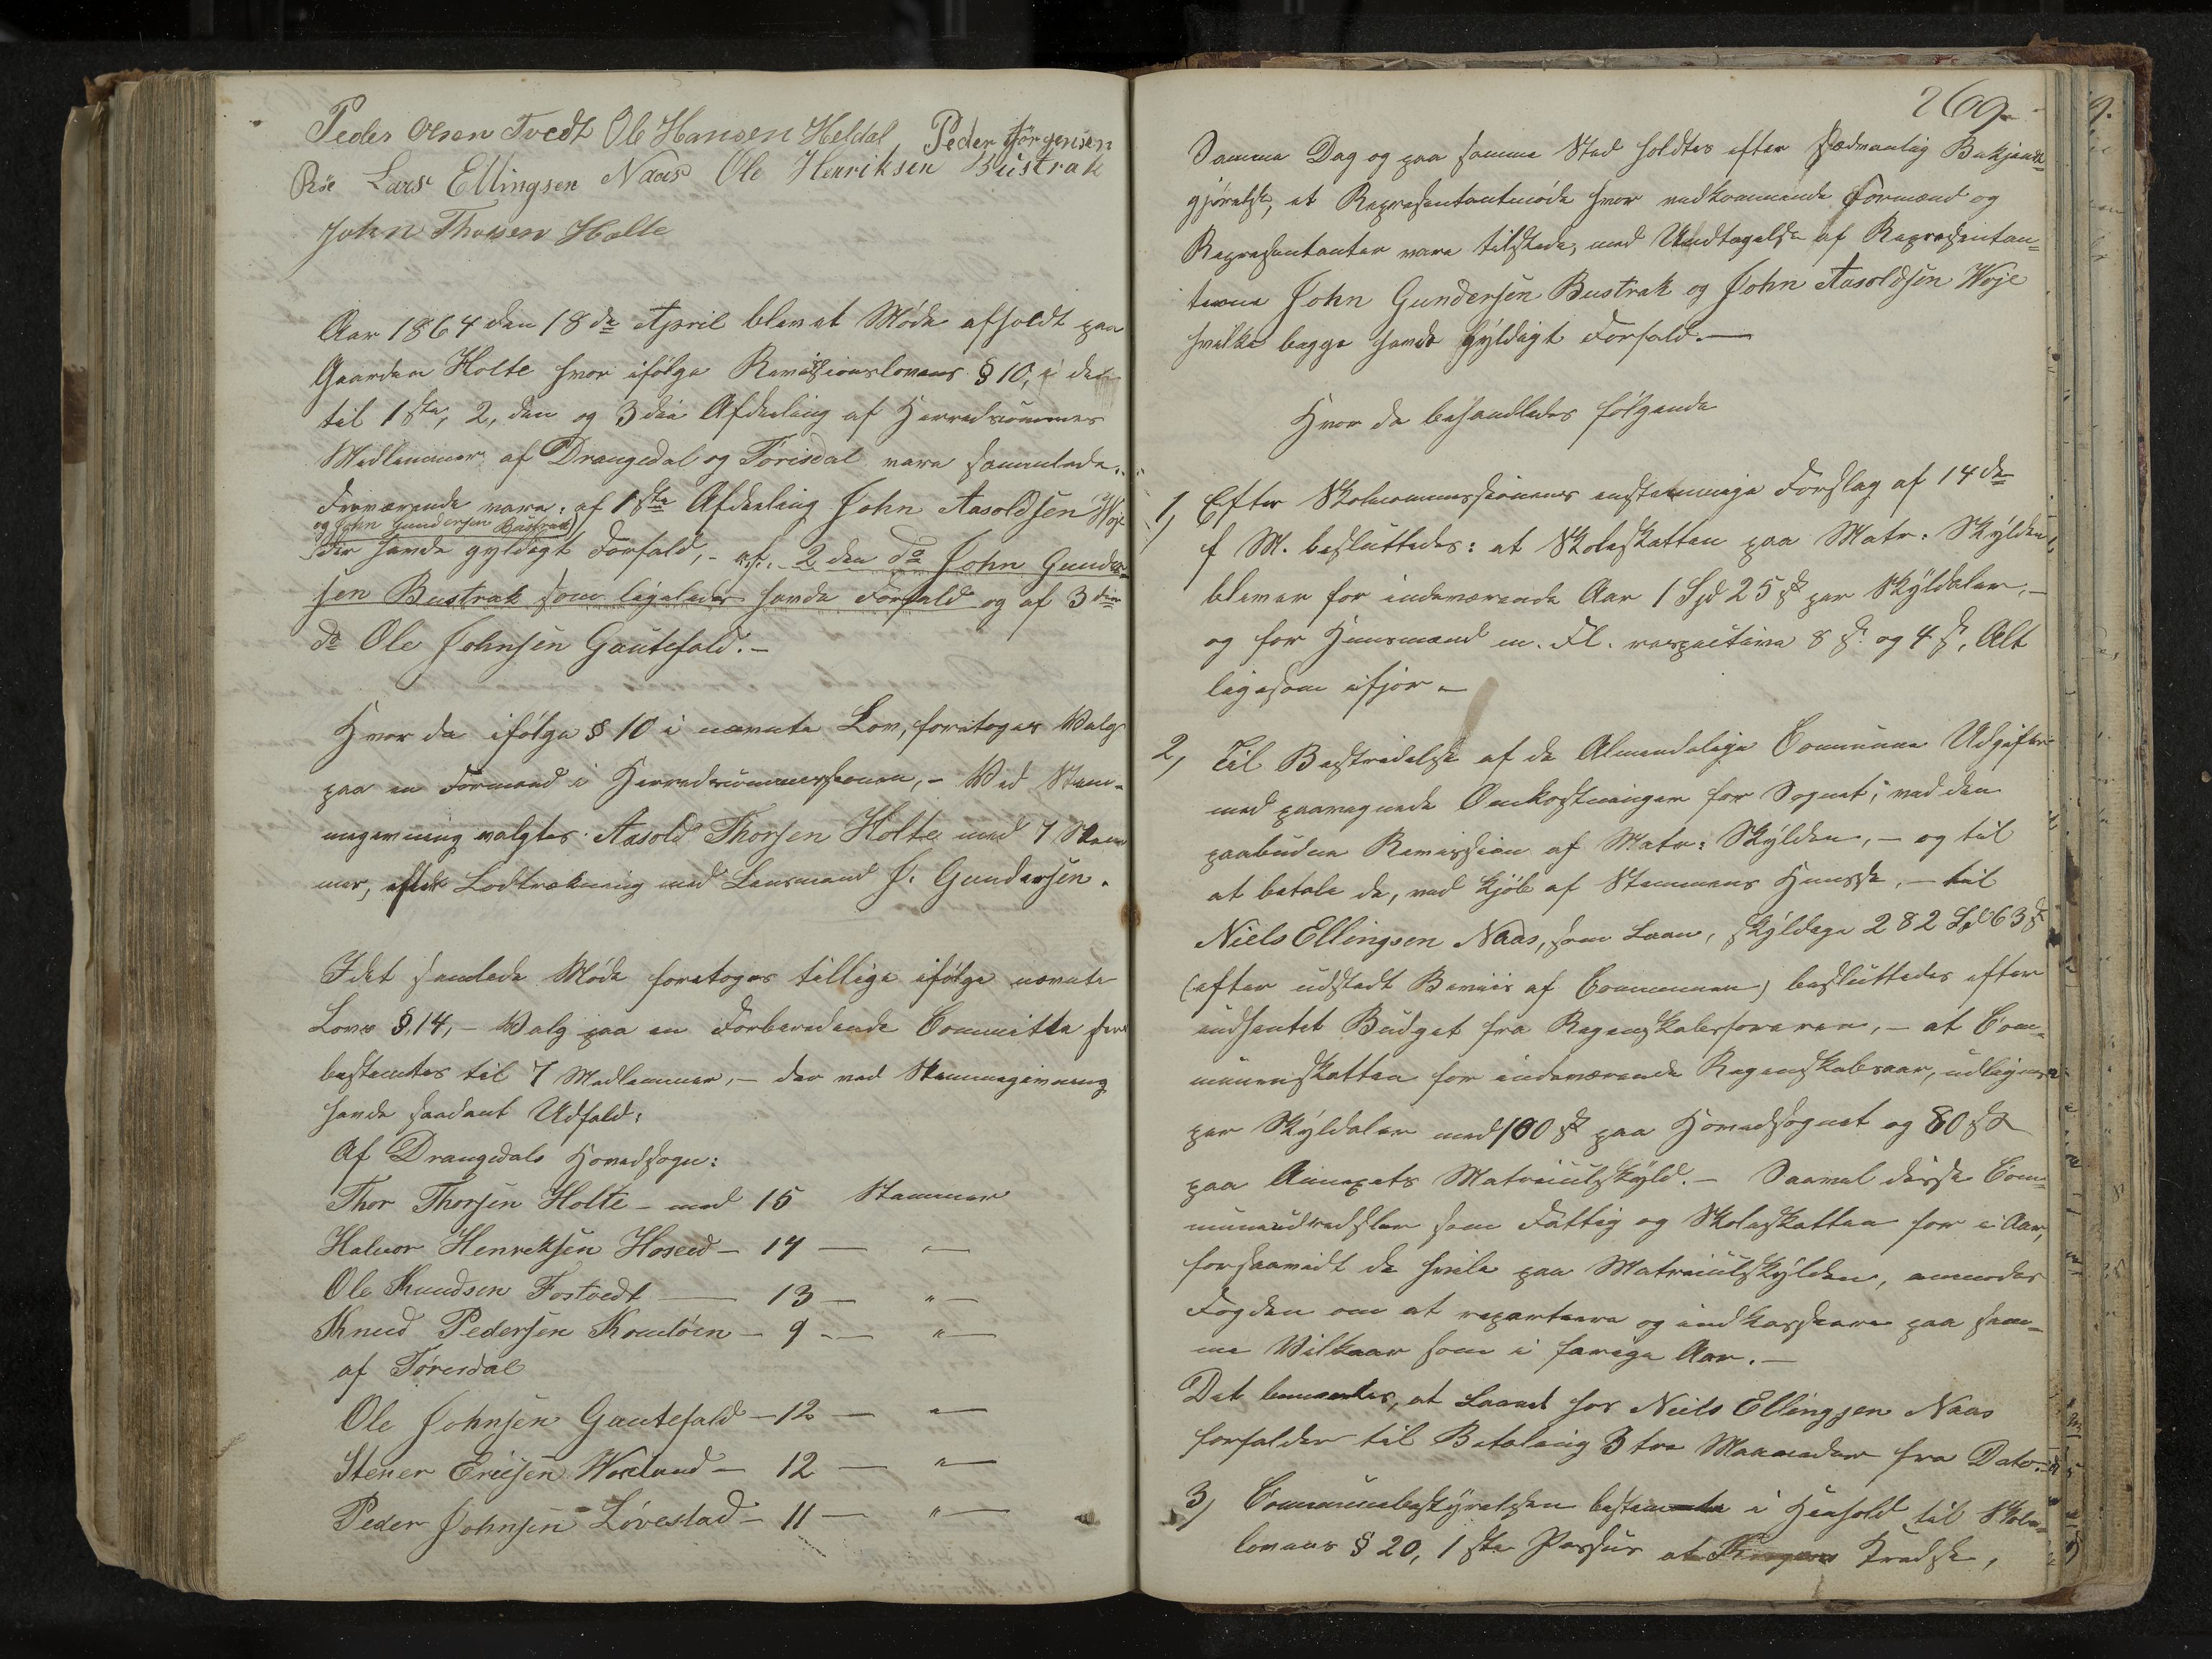 Peder Olsen Tvedt Ole Hansen Heldal Peder Jörgensen
Röe Lars Ellingsen Naas Ole Henriksen Bustrak
John Thorsen Holte
Aar 1864 den 18de April blev et Møde afholdt paa
Gaarden Holte hvor ifølge Revisionslovens § 10, i den
til 1ste, 2, den og 3die Afdeling af Herreds
Medlemmer af Drangedal og Tørisdal vare samlede.
Fraværende vare: af 1ste Afdeling John Aasoldsen Woje
og John Gundersen Bustrak
der havde gyldigt Forfald, - af 2den do John Gunder-
sen Bustrak som ligeledes havde Forfald og af 3die
do Ole Johnsen Gautefald. -
Hvor da ifølge § 10 i nævnte Lov, foretoges Valg
paa en Formand i Herredscommissionen, - Ved Stem-
megivning valgtes Aasold Thorsen Holte med 7 Stem
mer, efter Lodtrækning med Lensmand J. Gundersen.
I det samlede Møde foretoges tillige ifølge nævnte
Lovs § 14, - Valg paa en Forberedende Committe som
bestemtes til 7 Medlemmer, - der ved Stemmegivning
havde saadant Udfald:
Af Drangedals Hovedsogn:
Thor Thorsen Holte - med 15 Stemmer
Halvor Henriksen Hoseid - 14 — " —
Ole Knudsen Fostvedt — 13 — " —
Knud Pedersen - 9 — " —
af Tørisdal
Ole Johnsen Gautefald - 12 — " —
Stener Ericsen - 12 — " —
Peder Johnsen Løvestad - 11 — " —
269.
Samme Dag og paa samme Sted holdtes efter sædvanlig Bekjendt-
gjørelse, et Representantmøde hvor vedkommende Formænd og
Representanter vare tilstede, med Undtagelse af Representan-
terne John Gundersen Bustrak og John Aasoldsen Woje
hvilke begge havde gyldigt Forfald. —
Hvor da behandledes følgende
1, Efter Skolecommissionens enstemmige Forslag af 14de
f M. besluttedes: at Skoleskatten paa Matr: Skylden
bliver for indeværende Aar 1 Spd 25 ß per Skyldaler, -
og for Huusmænd m. Fl. respective 8 ß og 4 ß, Alt
ligesom ifjor -
2, Til Bestridelse af de Almindelige Commune Udgifter
med paaregnede Omkostninger for Sognet, ved den
paabudne Revision af Matr: Skylden, - og til
at betale de, ved Kjøb af Huuse, - til
Niels Ellingsen Naas, som Laan, skyldige 282 Spd 63 ß
(efter udstedt Beviis af Communen) besluttedes efter
indhentet Budget fra Regnskabsføreren, - at Com-
muneskatten for indeværende Regnskabsaar, udlignes
per Skyldaler med 100 ß paa Hovedsognet og 80 ß
paa Annexets Matriculskyld. - Saavel disse Com-
muneudredsler som Fattig og Skoleskatten for i Aar,
forsaavidt de hvile paa Matriculskylden, anmodes
Fogden om at repartere og indkassere paa sam-
me Vilkaar som i forrige Aar. -
Det bemærkes, at Laanet hos Niels Ellingsen Naas
forfalder til Betaling 3 tre Maaneder fra Dato.
3, Communebestyrelsen bestemte i Henhold til Skole-
lovens § 20, 1ste Passus at Kredse,